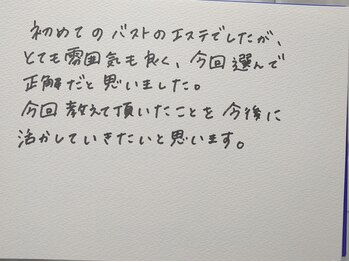 初めてのバストのエステでしたが、
とても雰囲気も良く、今回選んで
正解だと思いました。
今回教えて頂いたことを今後に
活かしていきたいと思います。